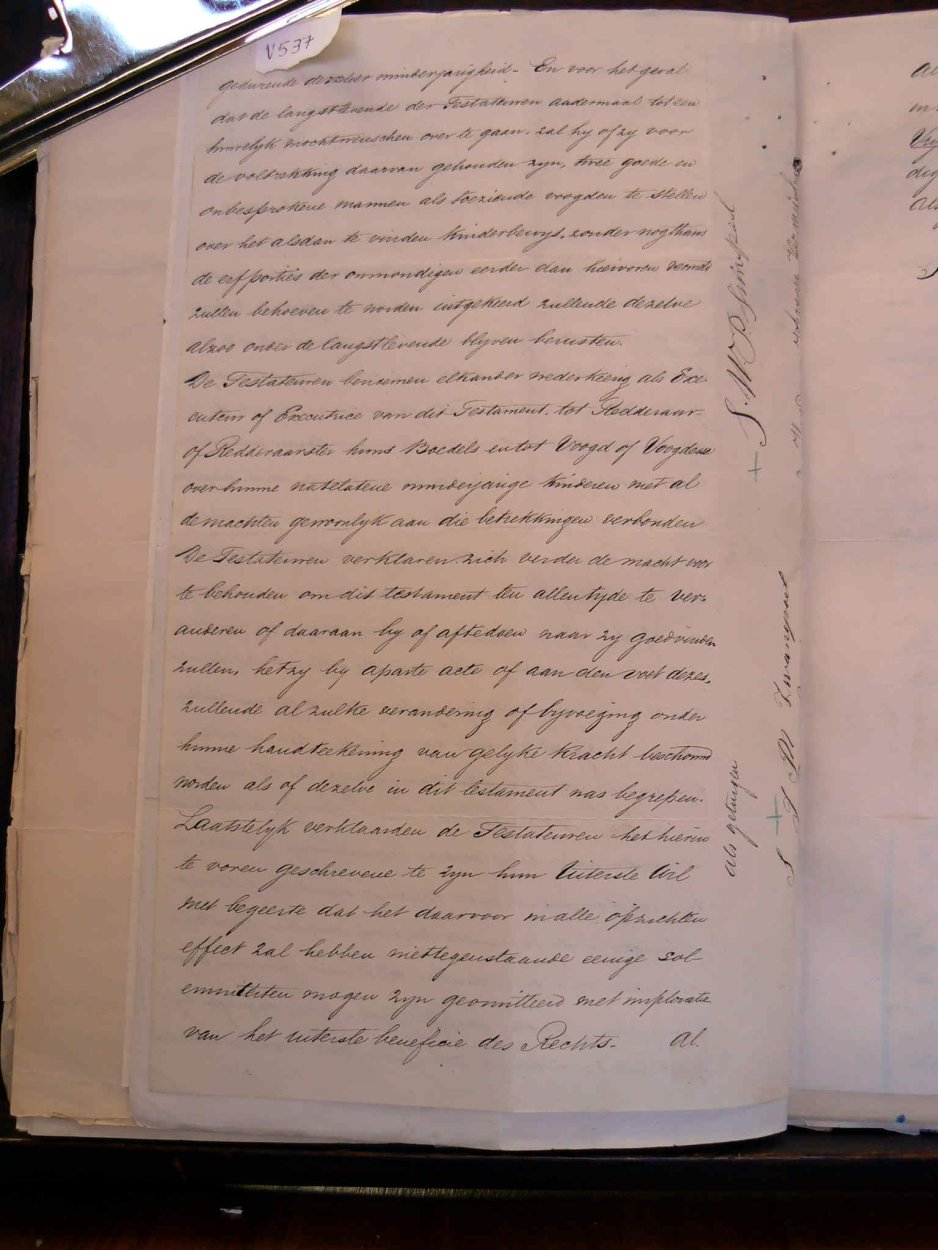 V537
gedurende derzelver minderjarigheid. En voor het geval
dat de langstlevende der Testateuren andermaal tot een
huwelyk mocht wenschen over te gaan, zal hy of zy voor
de voltrekking daarvan gehouden zyn, twee goede en
onbesprokene mannen als toeziende voogden te stellen
over het alsdan te vinden Kinderbewys, zonder nogthans
de erfporties der onmondigen eerder dan hiervoren vermeld
zullen behoeven te worden uitgekeerd zullende dezelve
alzoo onder de langstlevende blyven berusten.
De Testateuren benoemen elkander wederkeerig als Exe-
cuteur of Executrice van dit Testament, tot Redderaar
of Redderaarster huns Boedels en tot Voogd of Voogdesse
over hunne natelatene minderjarige kinderen met al
de machten gewoonlyk aan die betrekkingen verbonden
De Testateuren verklaren zich verder de macht voor
te behouden om dit testament ten allen tyde te ver-
anderen of daaraan by of aftedoen naar zy goedvinden
zullen, hetzy by aparte acte of aan den voet dezes,
zullende al zulke verandering of byvoeging onder
hunne handteekening van gelyke Kracht beschouwd
worden als of dezelve in dit testament was begrepen.
Laatstelyk verklaarden de Testateuren het hierin
te voren geschrevene te zyn hun Uiterste Wil
met begeerte dat het daarvoor in alle opzichten
effect zal hebben niettegenstaande eenige sol-
emniteiten mogen zyn geomitteerd met imploratie
van het uiterste beneficie des Rechts. Al.
als getuigen